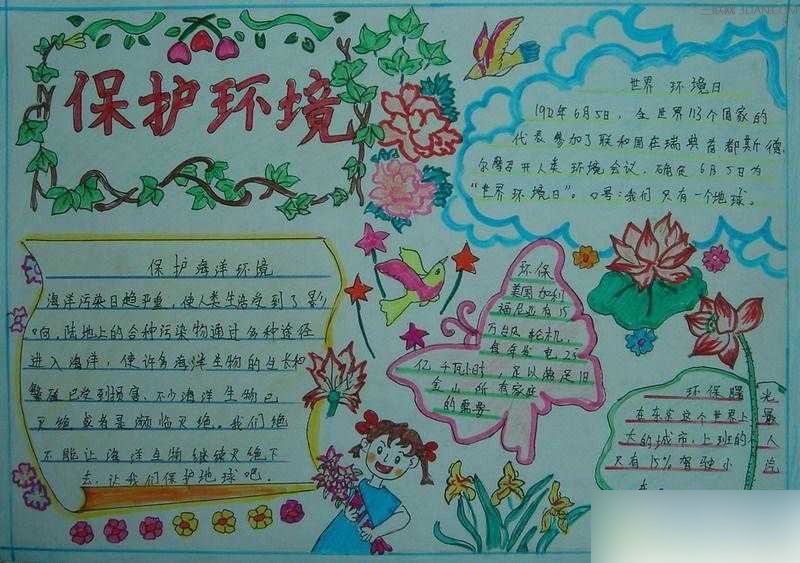 保护环境
世界 环境日
1972年6月5日，全世界113个国家的
代表参加了联和国在瑞典首都斯德
尔摩召开人类环境会议，确定6月5日为
“世界环境日”。口号：我们只有一个地球。
保护海洋环境
海洋污染日趋严重，使人类生活受到了影
响，陆地上的各种污染物通过多种途径
进入海洋，使许多海洋生物的生长和
繁殖已受到损害，不少海洋生物已
灭绝或者是濒临灭绝。我们绝
不能让海洋生物继续灭绝下
去，让我们保护地球吧。
环保
美国加利
福尼亚有15
万台风轮机，
每年发电25
亿千瓦小时，足以满足旧
金山所有家庭
的需要
环保曙光
在东京这个世界上最
大的城市，上班的人
只有15%驾驶小
车。